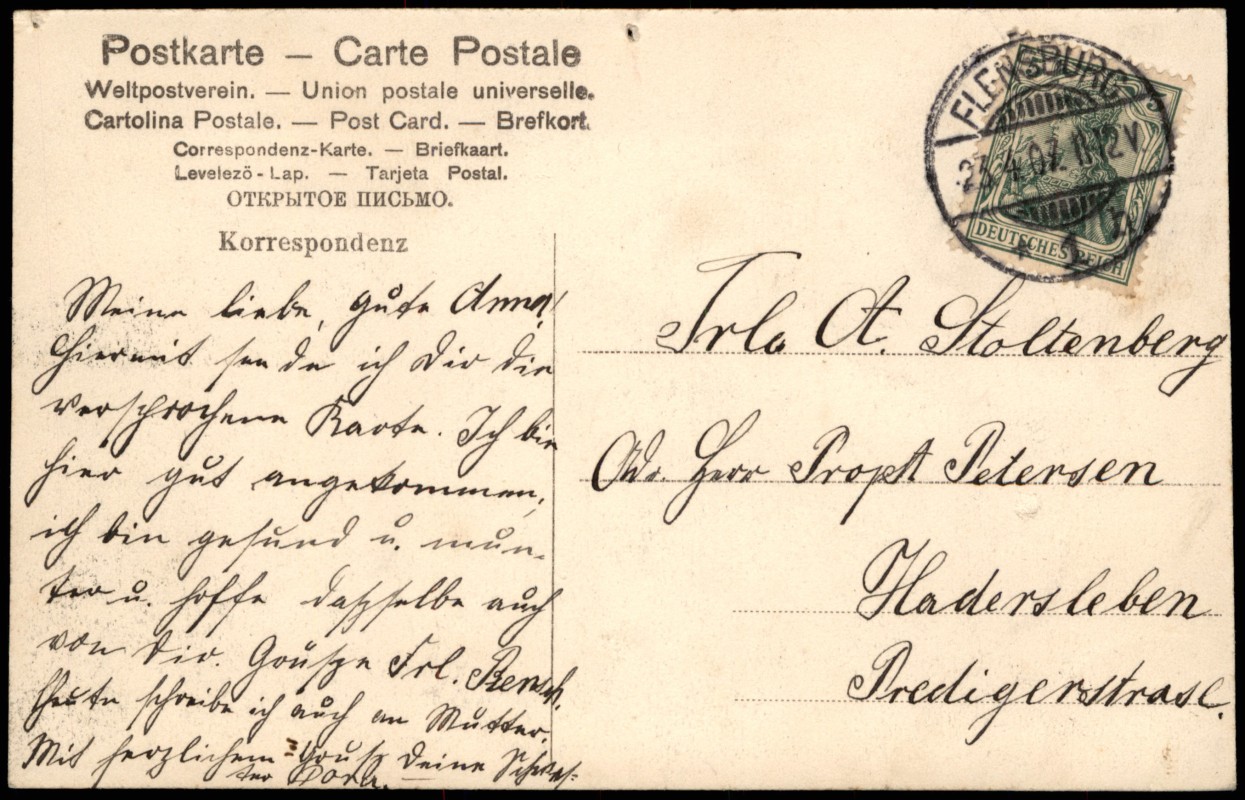 Postkarte — Carte Postale
Weltpostverein. — Union postale universelle.
Cartolina Postale. — Post Card. — Brefkort.
Correspondenz-Karte. — Briefkaart.
Levelezö-Lap. — Tarjeta Postal.
ОТКРЫТОЕ ПИСЬМО.
Korrespondenz
Meine liebe, gute Anna!
Hiermit sende ich Dir die
versprochene Karte. Ich bin
hier gut angekommen,
ich bin gesund u. mun-
ter u. hoffe dasselbe auch
von Dir. Grüsse Frl.
Heute schreibe ich auch an Mutter.
Mit herzlichem Gruß Deine Schwes-
ter Dora.
FLENSBURG
23.4.07. 11-12V
5
DEUTSCHES REICH
Frl. A. Stoltenberg
Adr. Herr Propst Petersen
Hadersleben
Predigerstrasse.